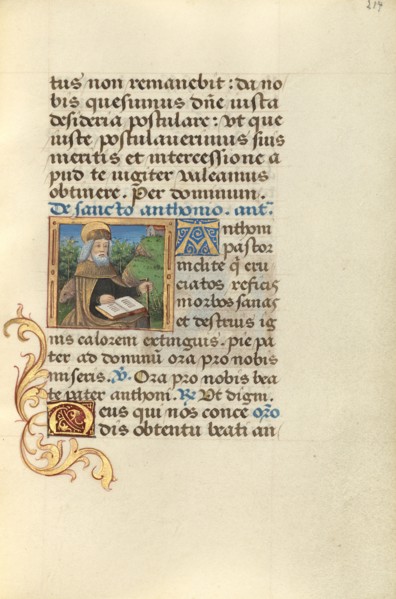 219
tus non remanebit : da no
bis quesumus dñe iusta
desideria postulare : vt que
iuste postulauerimus suis
meritis et intercessione a
pud te iugiter valeamus
obtinere. Per dominum.
De sancto anthonio. antᵃ.
Anthoni
pastor
inclite q̃ cru
ciatos reficis
morbos sanas
et destruis ig
nis calorem extinguis. pie pa
ter ad dominũ ora pro nobis
miseris. ℣. Ora pro nobis bea
te pater anthoni. Re Vt digni.
Deus qui nõs conce orõ
dis obtentu beati an